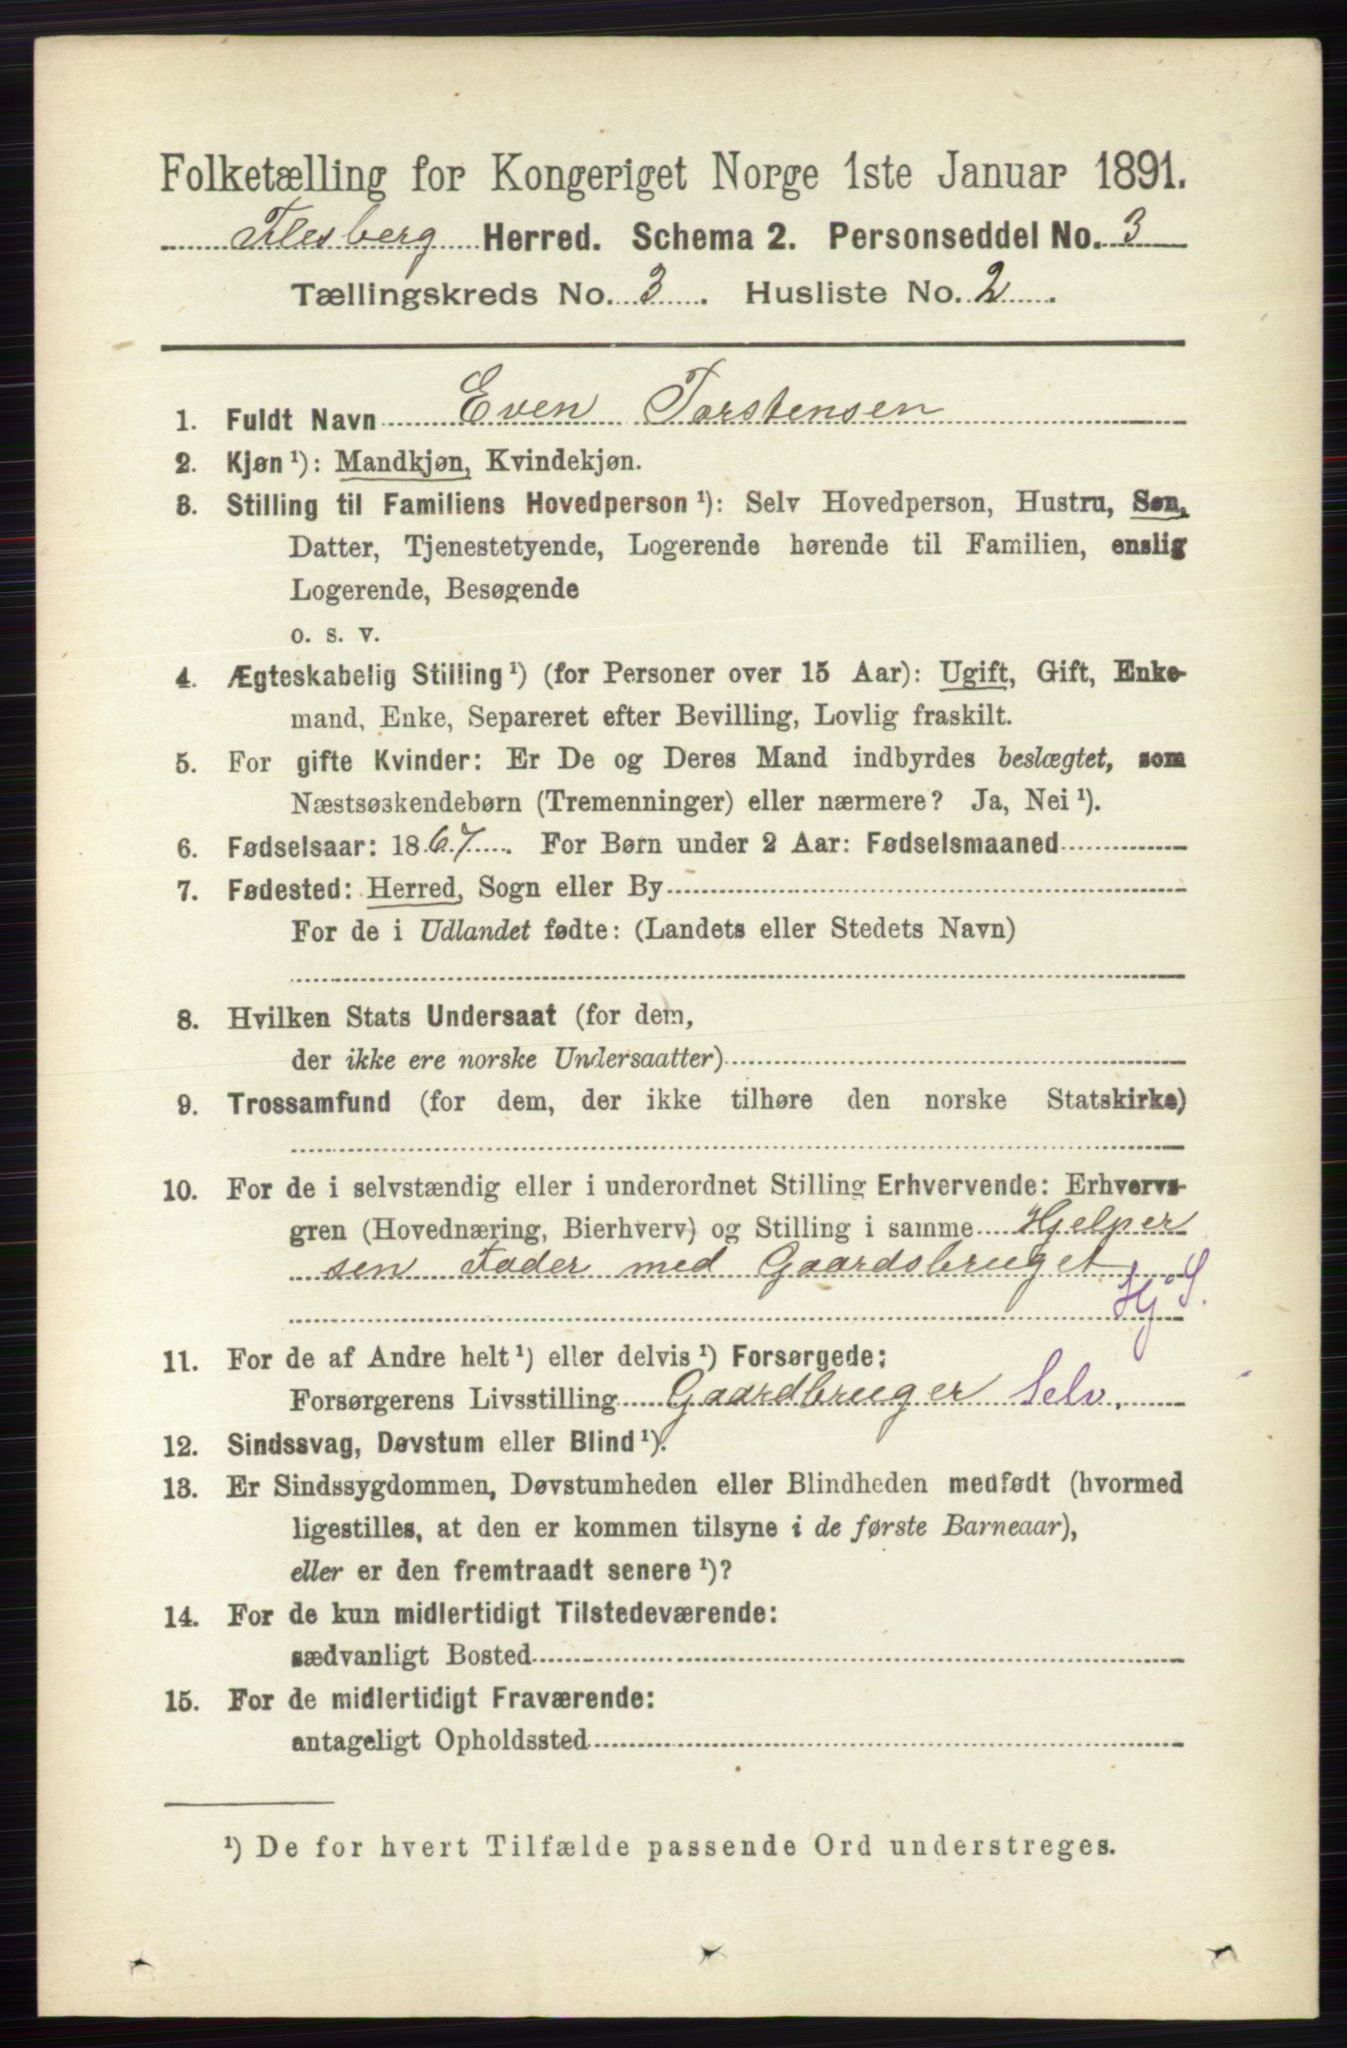 Folketælling for Kongeriget Norge 1ste Januar 1891.
Flesberg Herred. Schema 2. Personseddel No. 3
Tællingskreds No. 3. Husliste No. 2.
1. Fuldt Navn Even Torstensen
2. Kjøn ¹): Mandkjøn, Kvindekjøn.
3. Stilling til Familiens Hovedperson ¹): Selv Hovedperson, Hustru, Søn,
Datter, Tjenestetyende, Logerende hørende til Familien, enslig
Logerende, Besøgende
o. s. v.
4. Ægteskabelig Stilling ¹) (for Personer over 15 Aar): Ugift, Gift, Enke-
mand, Enke, Separeret efter Bevilling, Lovlig fraskilt.
5. For gifte Kvinder: Er De og Deres Mand indbyrdes beslægtet, som
Næstsøskendebørn (Tremenninger) eller nærmere? Ja, Nei ¹).
6. Fødselsaar: 1867. For Børn under 2 Aar: Fødselsmaaned
7. Fødested: Herred, Sogn eller By
For de i Udlandet fødte: (Landets eller Stedets Navn)
8. Hvilken Stats Undersaat (for dem,
der ikke ere norske Undersaatter)
9. Trossamfund (for dem, der ikke tilhøre den norske Statskirke)
10. For de i selvstændig eller i underordnet Stilling Erhvervende: Erhvervs-
gren (Hovednæring, Bierhverv) og Stilling i samme Hjelper
sen Fader med Gaardsbruget
Hj S.
11. For de af Andre helt ¹) eller delvis ¹) Forsørgede:
Forsørgerens Livsstilling Gaardbruger Selv.
12. Sindssvag, Døvstum eller Blind ¹).
13. Er Sindssygdommen, Døvstumheden eller Blindheden medfødt (hvormed
ligestilles, at den er kommen tilsyne i de første Barneaar),
eller er den fremtraadt senere ¹)?
14. For de kun midlertidigt Tilstedeværende:
sædvanligt Bosted
15. For de midlertidigt Fraværende:
antageligt Opholdssted
¹) De for hvert Tilfælde passende Ord understreges.